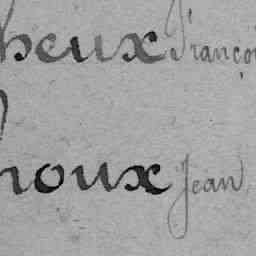 heux Françoi
houx Jean